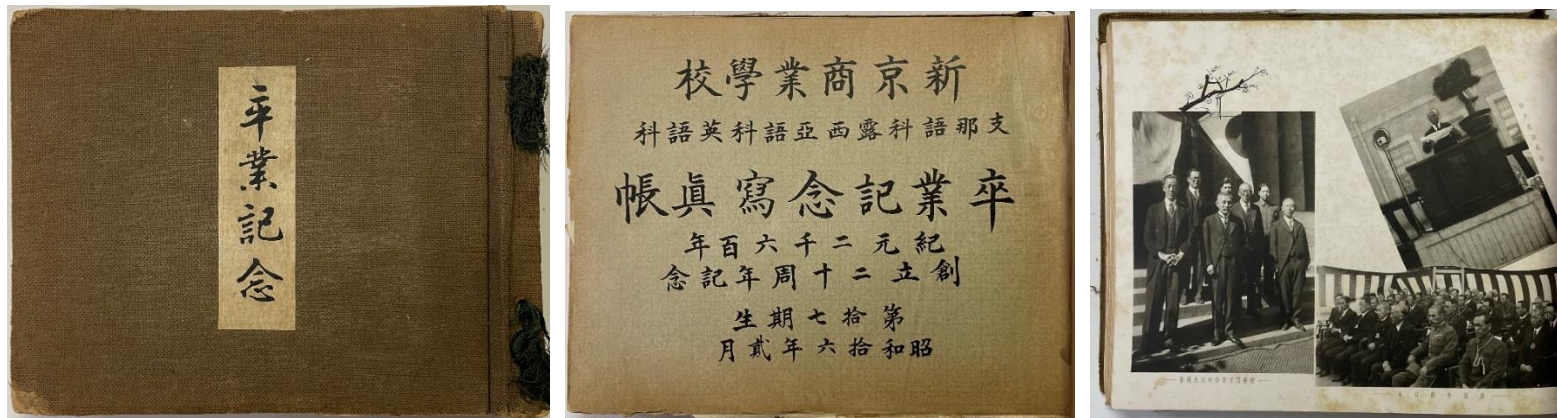 卒業記念
新京商業學校
支那語科露西亞語科英語科
卒業記念寫眞帳
紀元二千六百年
創立二十周年記念
第拾七期生
昭和拾六年貳月